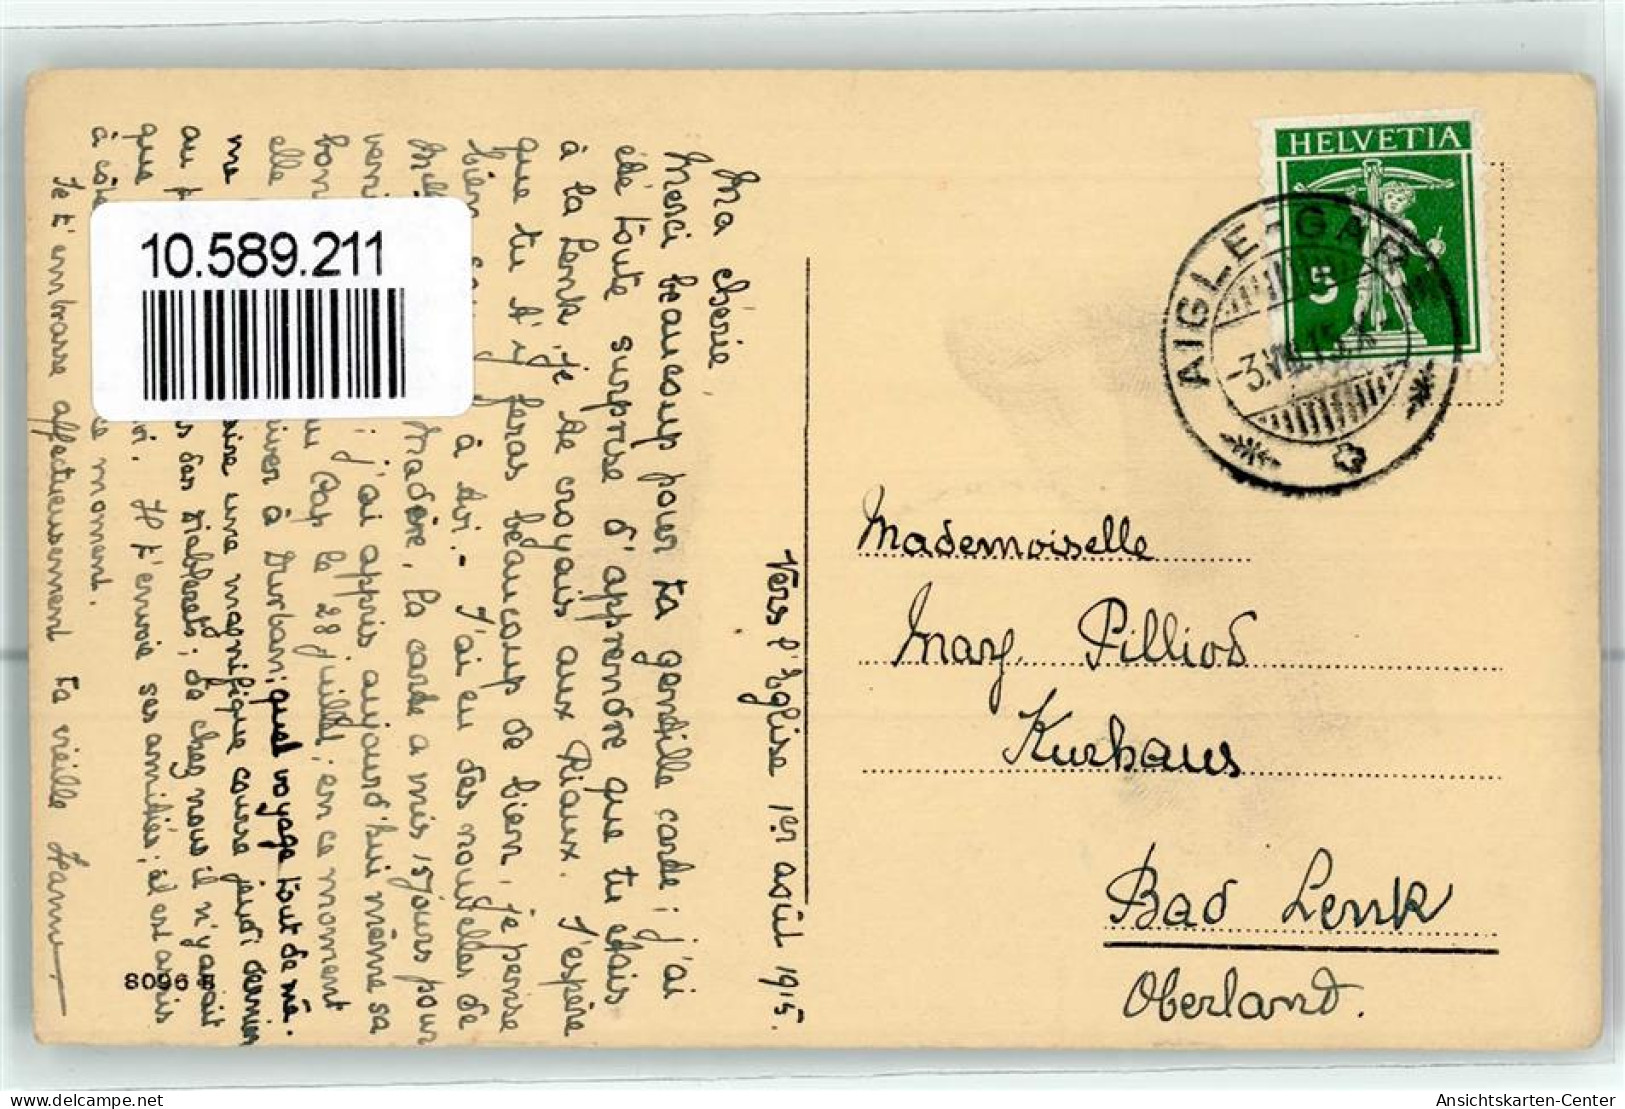 Vers l'Eglise 1er août 1915.
Ma chérie,
Merci beaucoup pour ta gentille carte ; j'ai
été toute surprise d'apprendre que tu étais
à la Lenk ; je te croyais aux Riaux. J'espère
que tu t'y feras beaucoup de bien, je pense
bien à toi. - J'ai eu des nouvelles de
Madère, la carte a mis 15 jours pour
venir ; j'ai appris aujourd'hui même sa
Cap le 28 juillet ; en ce moment
elle à Durban ; quel voyage tout de mê-
me une magnifique course jeudi dernier
au des Diablerets ; de chez nous il n'y avait
que H t'envoie ses amitiés ; il est assis
à côté ce moment.
Je t'embrasse affectueusement ta vieille
8096
10.589.211
HELVETIA
5
AIGLE-GARE
-3.VIII.15.
Mademoiselle
Marg. Pilliod
Kurhaus
Bad Lenk
Oberland.
Ansichtskarten-Center